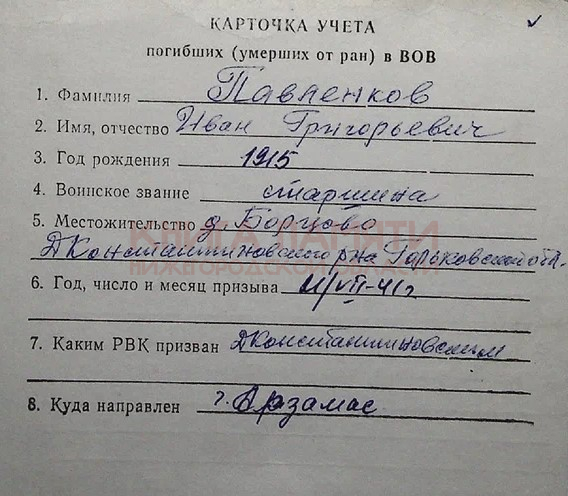 КАРТОЧКА УЧЕТА
погибших (умерших от ран) в ВОВ
1. Фамилия Павленков
2. Имя, отчество Иван Григорьевич
3. Год рождения 1915
4. Воинское звание старшина
5. Местожительство д. Борцово
ДКонстантиновского р-на Горьковской обл.
КНИГА ПАМЯТИ
НИЖЕГОРОДСКОЙ ОБЛАСТИ
6. Год, число и месяц призыва 11/VII-41г
7. Каким РВК призван ДКонстантиновским
8. Куда направлен г. Арзамас